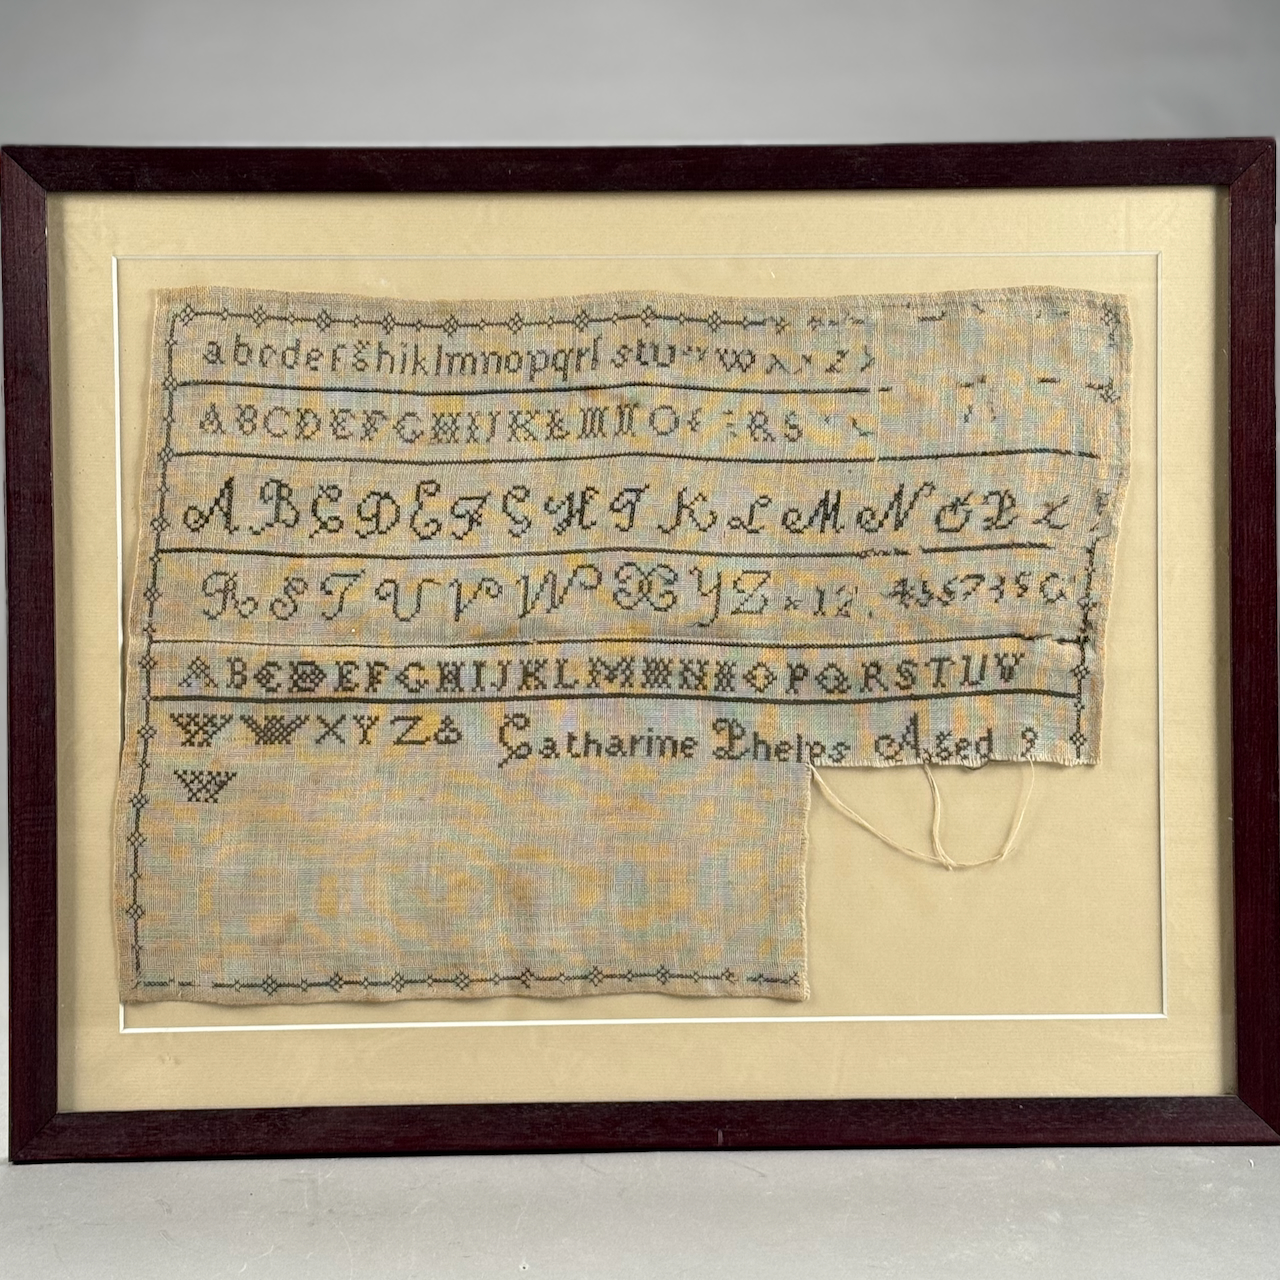 abcdefghiklmnopqrſstuvwxyz
ABCDEFGHIJKLMNOP RS
ABCDEFGHIKLMNOPQ
RSTUVWXYZ 12 456789
ABCDEFGHIJKLMNOPQRSTUV
WXYZ& Catharine Phelps Aged 9
W